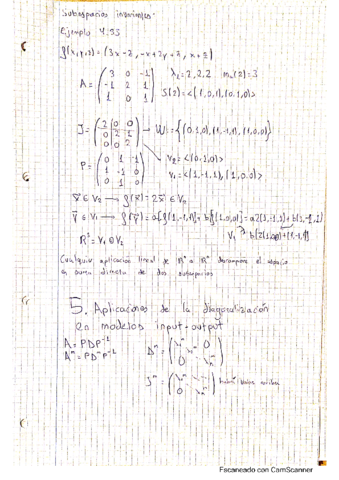 Subespacios invariantes
Ejemplo 4.33
f(x,y,z) = (3x-z, -x+2y+z, x+z)
A = ( 3 0 -1 ; -1 2 1 ; 1 0 1 ) λ₁=2,2,2 m_a(2)=3
S(2)=<(1,0,1),(0,1,0)>
J = ( 2 0 0 ; 0 2 1 ; 0 0 2 ) → W = {(0,1,0),(1,-1,1),(1,0,0)}
P = ( 0 1 1 ; 1 -1 0 ; 0 1 0 ) V₂=<(0,1,0)>
V₁=<(1,-1,1),(1,0,0)>
v ∈ V₂ → f(v) = 2v ∈ V₂
v ∈ V₁ → f(v) = a f(1,-1,1) + b f(1,0,0) = a2(1,-1,1) +
V₁ b[2(1,0,0)+(1,-1,1)]
R³ = V₁ ⊕ V₂
Cualquier aplicación lineal de Rⁿ a Rⁿ descompone el espacio
en suma directa de dos subespacios
5. Aplicaciones de la diagonalización
en modelos input-output
A = PDP⁻¹
Aⁿ = PDⁿP⁻¹
Dⁿ =
Jⁿ =
Escaneado con CamScanner